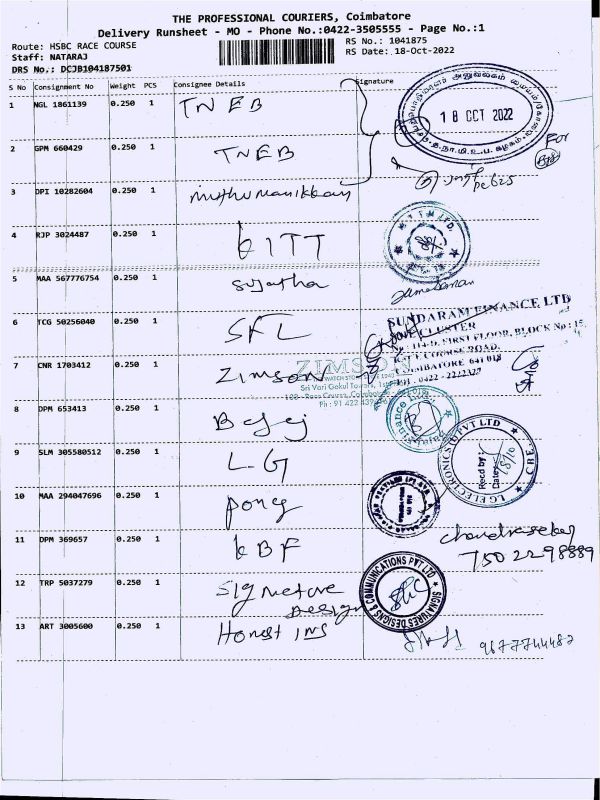 THE PROFESSIONAL COURIERS, Coimbatore
Delivery Runsheet - MO - Phone No.:0422-3505555 - Page No.:1
Route: HSBC RACE COURSE
RS No.: 1041875
Staff: NATARAJ
RS Date: 18-Oct-2022
DRS No.: DCJB104187501
S No Consignment No Weight PCS Consignee Details Signature
1 NGL 1861139 0.250 1 TNEB
18 OCT 2022
For
2 GPM 660429 0.250 1 TNEB
3 DPI 10282604 0.250 1 muthu manikkam
4 RJP 3024487 0.250 1 KITT
5 MAA 567776754 0.250 1 sujatha
6 TCG 50256040 0.250 1 SFL
SUNDARAM FINANCE LTD
FIRST FLOOR, BLOCK No : 15,
RACE COURSE ROAD,
COIMBATORE 641 018
PH : 0422 - 2222327
7 CNR 1703412 0.250 1 ZIMSON
ZIMSON
Sri Vari Gokul Towers,
Race Course, Coimbatore
Ph : 91 422
8 DPM 653413 0.250 1 Bajaj
Finance
9 SLM 305580512 0.250 1 LG
LG ELECTRONICS (I) PVT LTD
CBE
Recd by :
Date : 18/10
10 MAA 294047696 0.250 1 pong
11 DPM 369657 0.250 1 KBF
chandrasekar
7502298889
12 TRP 5037279 0.250 1 Signature Design
SIGNATURES DESIGNS & COMMUNICATIONS PVT LTD
13 ART 3005600 0.250 1 Honest Ins
9677744482